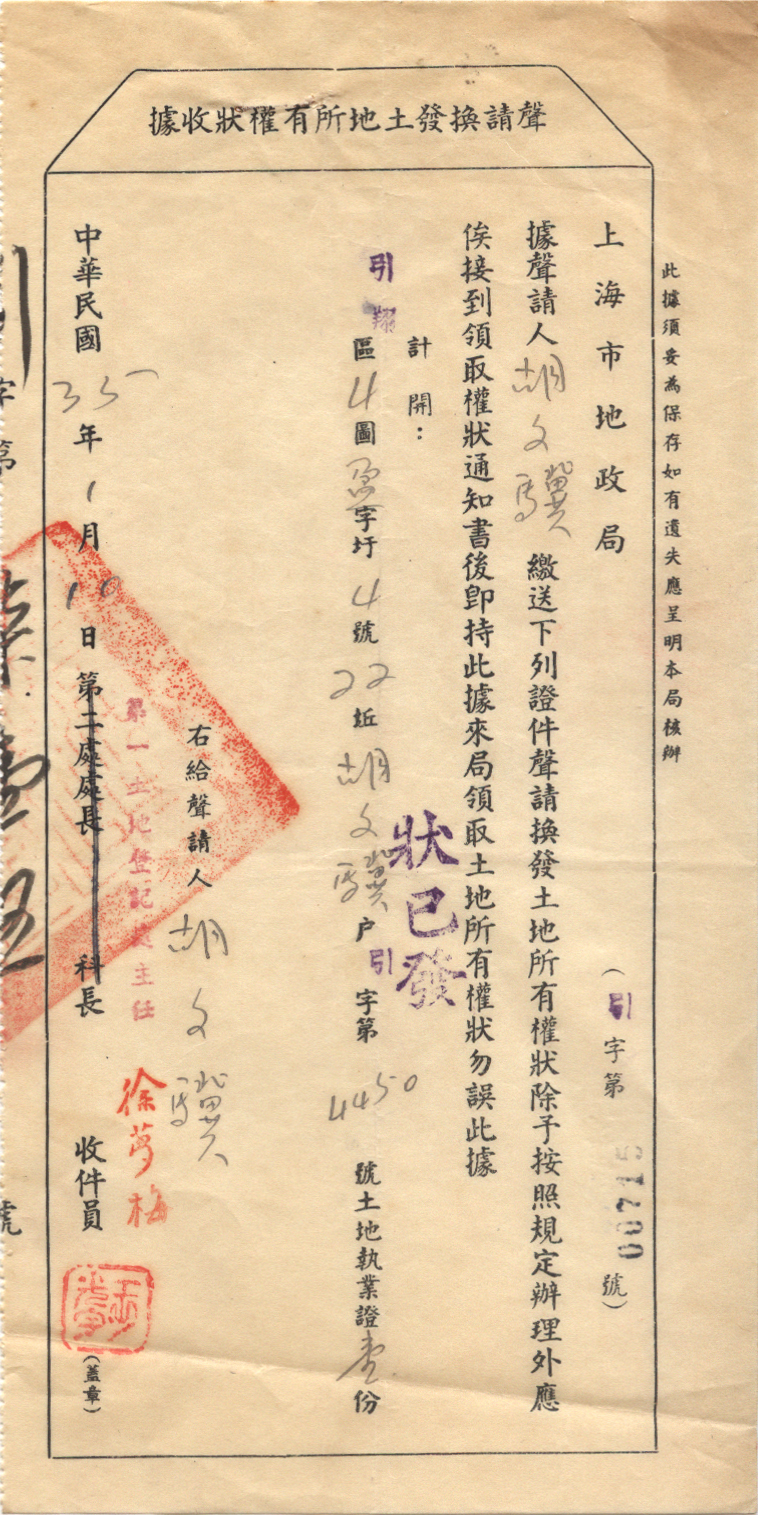 聲請換發土地所有權狀收據
此據須妥為保存如有遺失應呈明本局核辦
上海市地政局
(引字第00715號)
據聲請人胡文驥繳送下列證件聲請換發土地所有權狀除予按照規定辦理外應
俟接到領取權狀通知書後卽持此據來局領取土地所有權狀勿誤此據
計開:
狀已發
引翔區4圖 字圩4號22坵胡文驥户引字第4450號土地執業證壹份
右給聲請人胡文驥
第一土地登記處主任徐夢梅
中華民國35年1月10日第二處處長 科長 收件員(蓋章)
字第
號